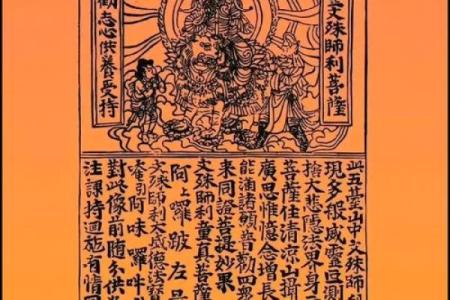 文殊師利菩薩
勸志心供養受持
此五臺山中文殊師利
現多般威靈叵測
捨大悲隱法界身
菩薩住清涼山攝
廣思惟憶念增長
能滋諸福普勸四眾
來同證菩提妙果
文殊師利童真菩薩
阿上囉跛左曩
文殊師利大威德法寶
唵引阿味囉吽
對此像前隨分供
注課持迴施有情同